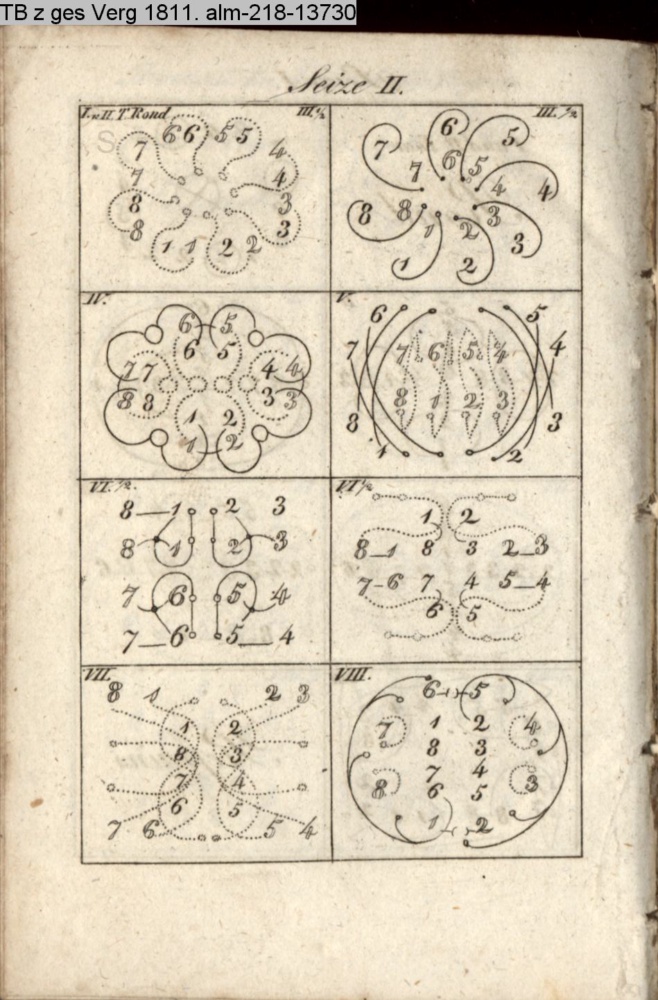 TB z ges Verg 1811. alm-218-13730
Seize II.
I. u II. T. Rond III. ½
6 6 5 5
7 4
7 4
8 3
8 3
1 1 2 2
III. ½
6 5
7 6 5
7 4 4
8 8 3
1 2 3
1 2
IV.
6 5
6 5
7 7 4 4
8 8 3 3
1 2
1 2
V.
6 5
7 7 6 5 4 4
8 8 1 2 3 3
1 2
VI. ½
8 1 2 3
8 1 2 3
7 6 5 4
7 6 5 4
VI ½
1 2
8 1 8 3 2 3
7 6 7 4 5 4
6 5
VII.
8 1 2 3
1 2
8 3
7 4
6 5
7 6 5 4
VIII.
6 5
7 1 2 4
8 3
7 4
8 6 5 3
1 2